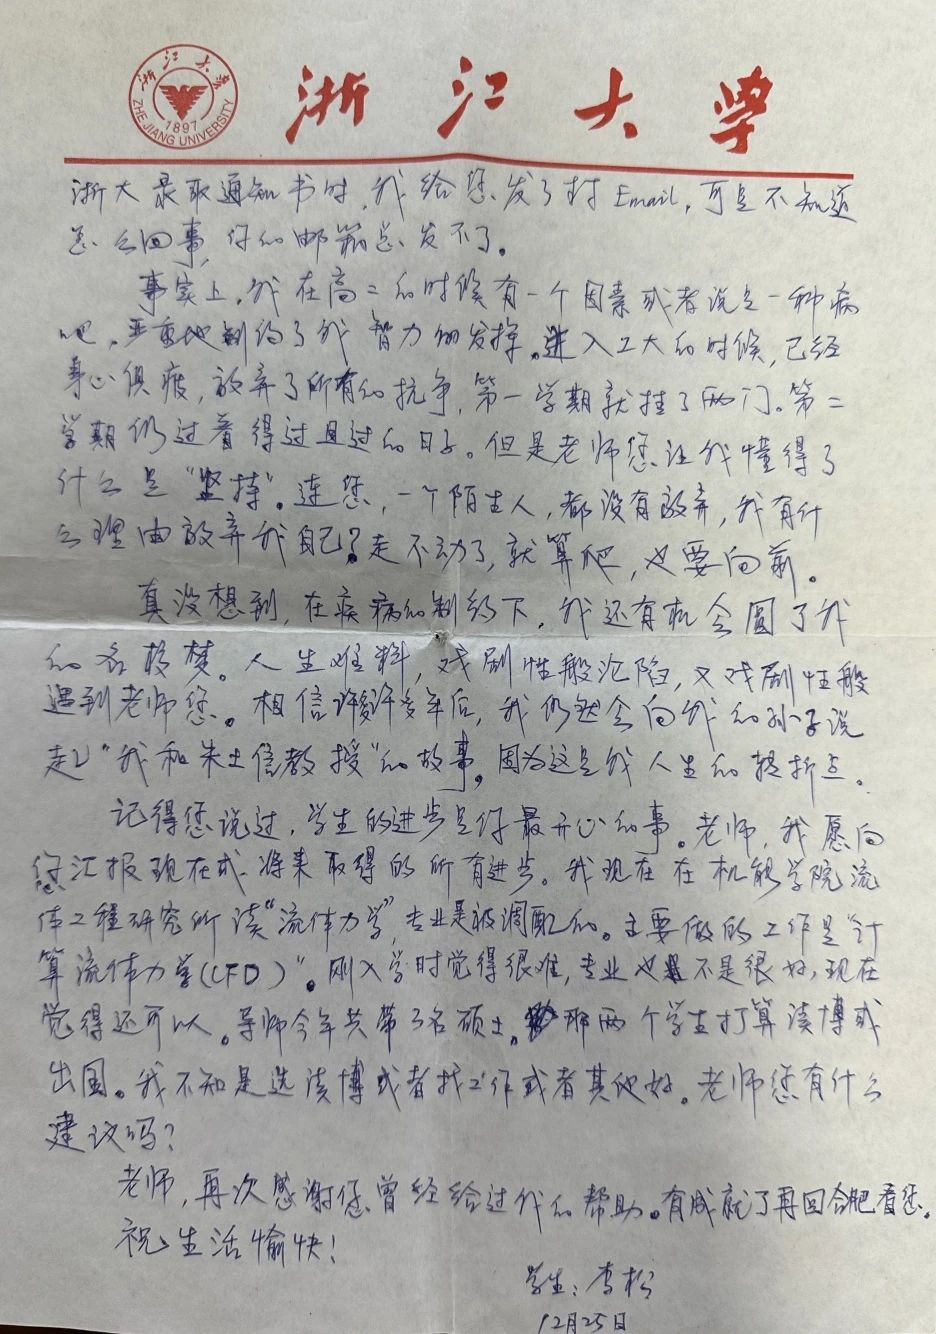 浙江大学
浙江大学
ZHEJIANG UNIVERSITY
1897
浙大录取通知书时,我给您发了封Email,可是不知道
怎么回事,你的邮箱总发不了。
事实上,我在高二的时候有一个因素或者说是一种病
吧,严重地制约了我智力的发挥。进入工大的时候,已经
身心俱疲,放弃了所有的抗争,第一学期就挂了两门。第二
学期仍过着得过且过的日子。但是老师您让我懂得了
什么是“坚持”。连您,一个陌生人,都没有放弃,我有什
么理由放弃我自己?走不动了,就算爬,也要向前。
真没想到,在疾病的制约下,我还有机会圆了我
的名校梦。人生难料,戏剧性般沦陷,又戏剧性般
遇到老师您。相信许许多年后,我仍然会向我的孙子说
起“我和朱士信教授”的故事,因为这是我人生的转折点。
记得您说过,学生的进步是你最开心的事。老师,我愿向
您汇报现在或将来取得的所有进步。我现在在机能学院流
体工程研究所读“流体力学”,专业是被调配的。主要做的工作是“计
算流体力学(CFD)”。刚入学时觉得很难,专业也不是很好,现在
觉得还可以。导师今年共带了3名硕士。那两个学生打算读博或
出国。我不知是选读博或者找工作或者其他好。老师您有什么
建议吗?
老师,再次感谢您曾经给过我的帮助。有成就了再回合肥看您。
祝生活愉快!
学生:李松
12月25日